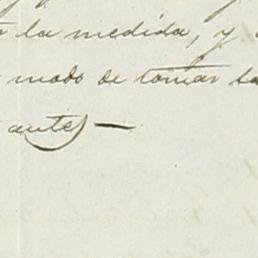 la medida, y
modo de tomar la
ante) —